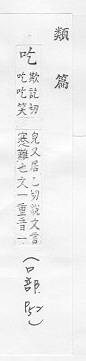 類篇
吃
欺訖切
吃吃笑
皃又居乙切說文言
蹇難也文一重音一
(口部 P52)